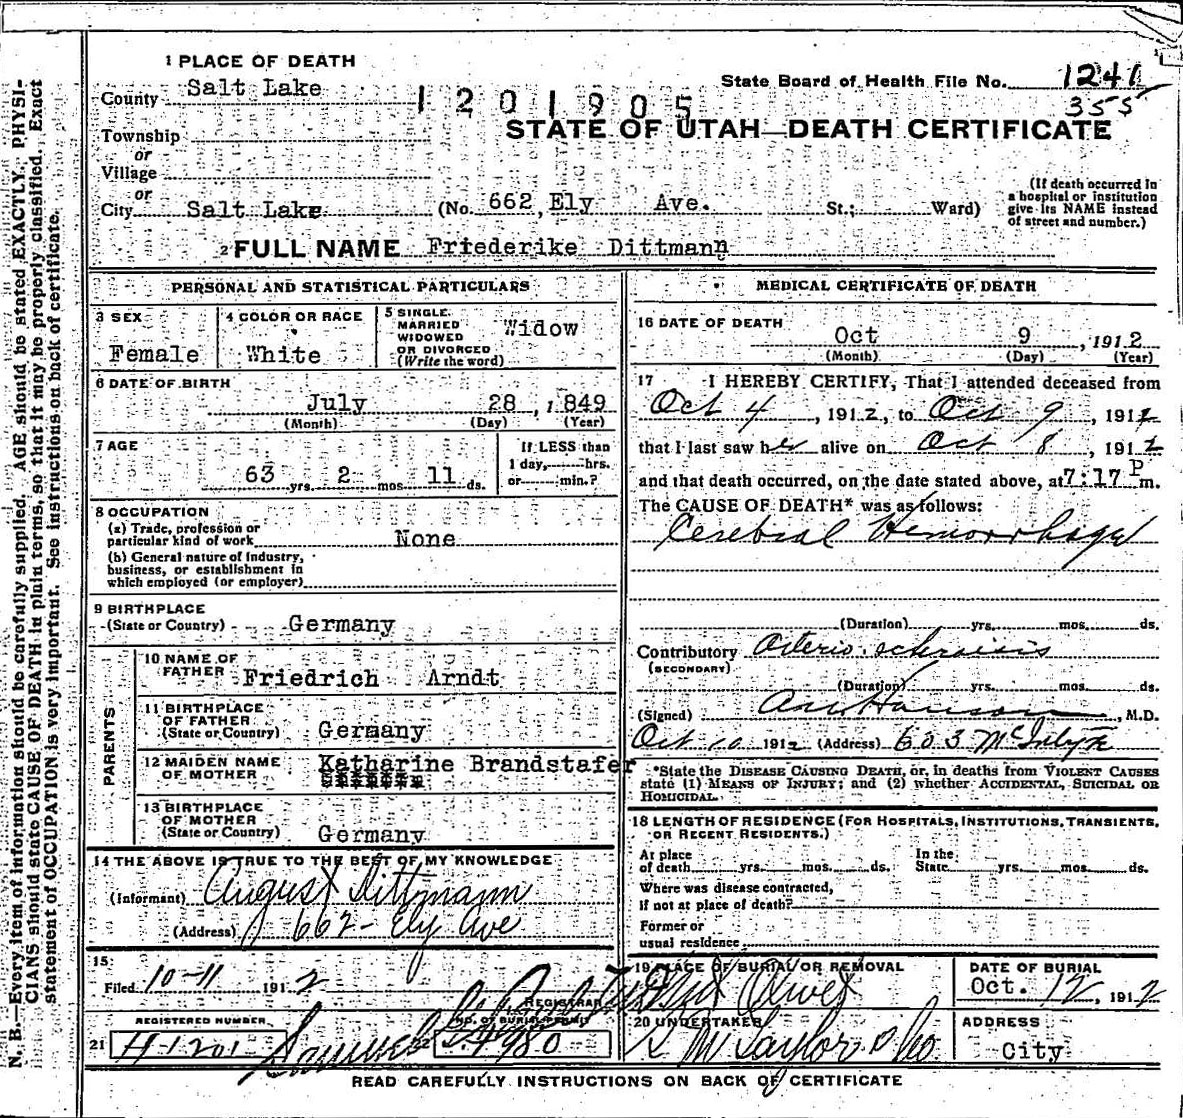 1 PLACE OF DEATH
County Salt Lake
State Board of Health File No. 1241
355
1201905
STATE OF UTAH—DEATH CERTIFICATE
Township
or
Village
or
City Salt Lake (No. 662, Ely Ave. St.; Ward)
(If death occurred in a hospital or institution give its NAME instead of street and number.)
2 FULL NAME Friederike Dittmann
PERSONAL AND STATISTICAL PARTICULARS
3 SEX
Female
4 COLOR OR RACE
White
5 SINGLE, MARRIED WIDOWED OR DIVORCED (Write the word)
Widow
6 DATE OF BIRTH
July 28, 1849
(Month) (Day) (Year)
7 AGE
63 yrs. 2 mos. 11 ds.
If LESS than
1 day, hrs.
or min.?
8 OCCUPATION
(a) Trade, profession or
particular kind of work None
(b) General nature of Industry,
business, or establishment in
which employed (or employer)
9 BIRTHPLACE
(State or Country) Germany
PARENTS
10 NAME OF
FATHER Friedrich Arndt
11 BIRTHPLACE
OF FATHER
(State or Country) Germany
12 MAIDEN NAME
OF MOTHER Katharine Brandstafer
13 BIRTHPLACE
OF MOTHER
(State or Country) Germany
14 THE ABOVE IS TRUE TO THE BEST OF MY KNOWLEDGE
(Informant) August Dittmann
(Address) 662 - Ely Ave
15
Filed 10-11 1912
REGISTRAR
REGISTERED NUMBER
21 H-1201
NO. OF BURIAL PERMIT
22 4980
MEDICAL CERTIFICATE OF DEATH
16 DATE OF DEATH
Oct 9, 1912
(Month) (Day) (Year)
17 I HEREBY CERTIFY, That I attended deceased from
Oct 4, 1912, to Oct 9, 1912
that I last saw her alive on Oct 8, 1912
and that death occurred, on the date stated above, at 7:17 P m.
The CAUSE OF DEATH* was as follows:
Cerebral Hemorrhage
(Duration) yrs. mos. ds.
Contributory Arterio-schraisis
(SECONDARY)
(Duration) yrs. mos. ds.
(Signed) Hanson, M.D.
Oct 10 1912 (Address) 603 McIntyre
*State the DISEASE CAUSING DEATH, or, in deaths from VIOLENT CAUSES
state (1) MEANS OF INJURY; and (2) whether ACCIDENTAL, SUICIDAL OR
HOMICIDAL.
18 LENGTH OF RESIDENCE (FOR HOSPITALS, INSTITUTIONS, TRANSIENTS,
OR RECENT RESIDENTS.)
At place
of death yrs. mos. ds.
In the
State yrs. mos. ds.
Where was disease contracted,
if not at place of death?
Former or
usual residence
19 PLACE OF BURIAL OR REMOVAL
Mt Olivet
DATE OF BURIAL
Oct. 12, 1912
20 UNDERTAKER
S M Taylor & Co
ADDRESS
City
READ CAREFULLY INSTRUCTIONS ON BACK OF CERTIFICATE
N. B.—Every item of information should be carefully supplied. AGE should be stated EXACTLY. PHYSI-
CIANS should state CAUSE OF DEATH in plain terms, so that it may be properly classified. Exact
statement of OCCUPATION is very important. See instructions on back of certificate.